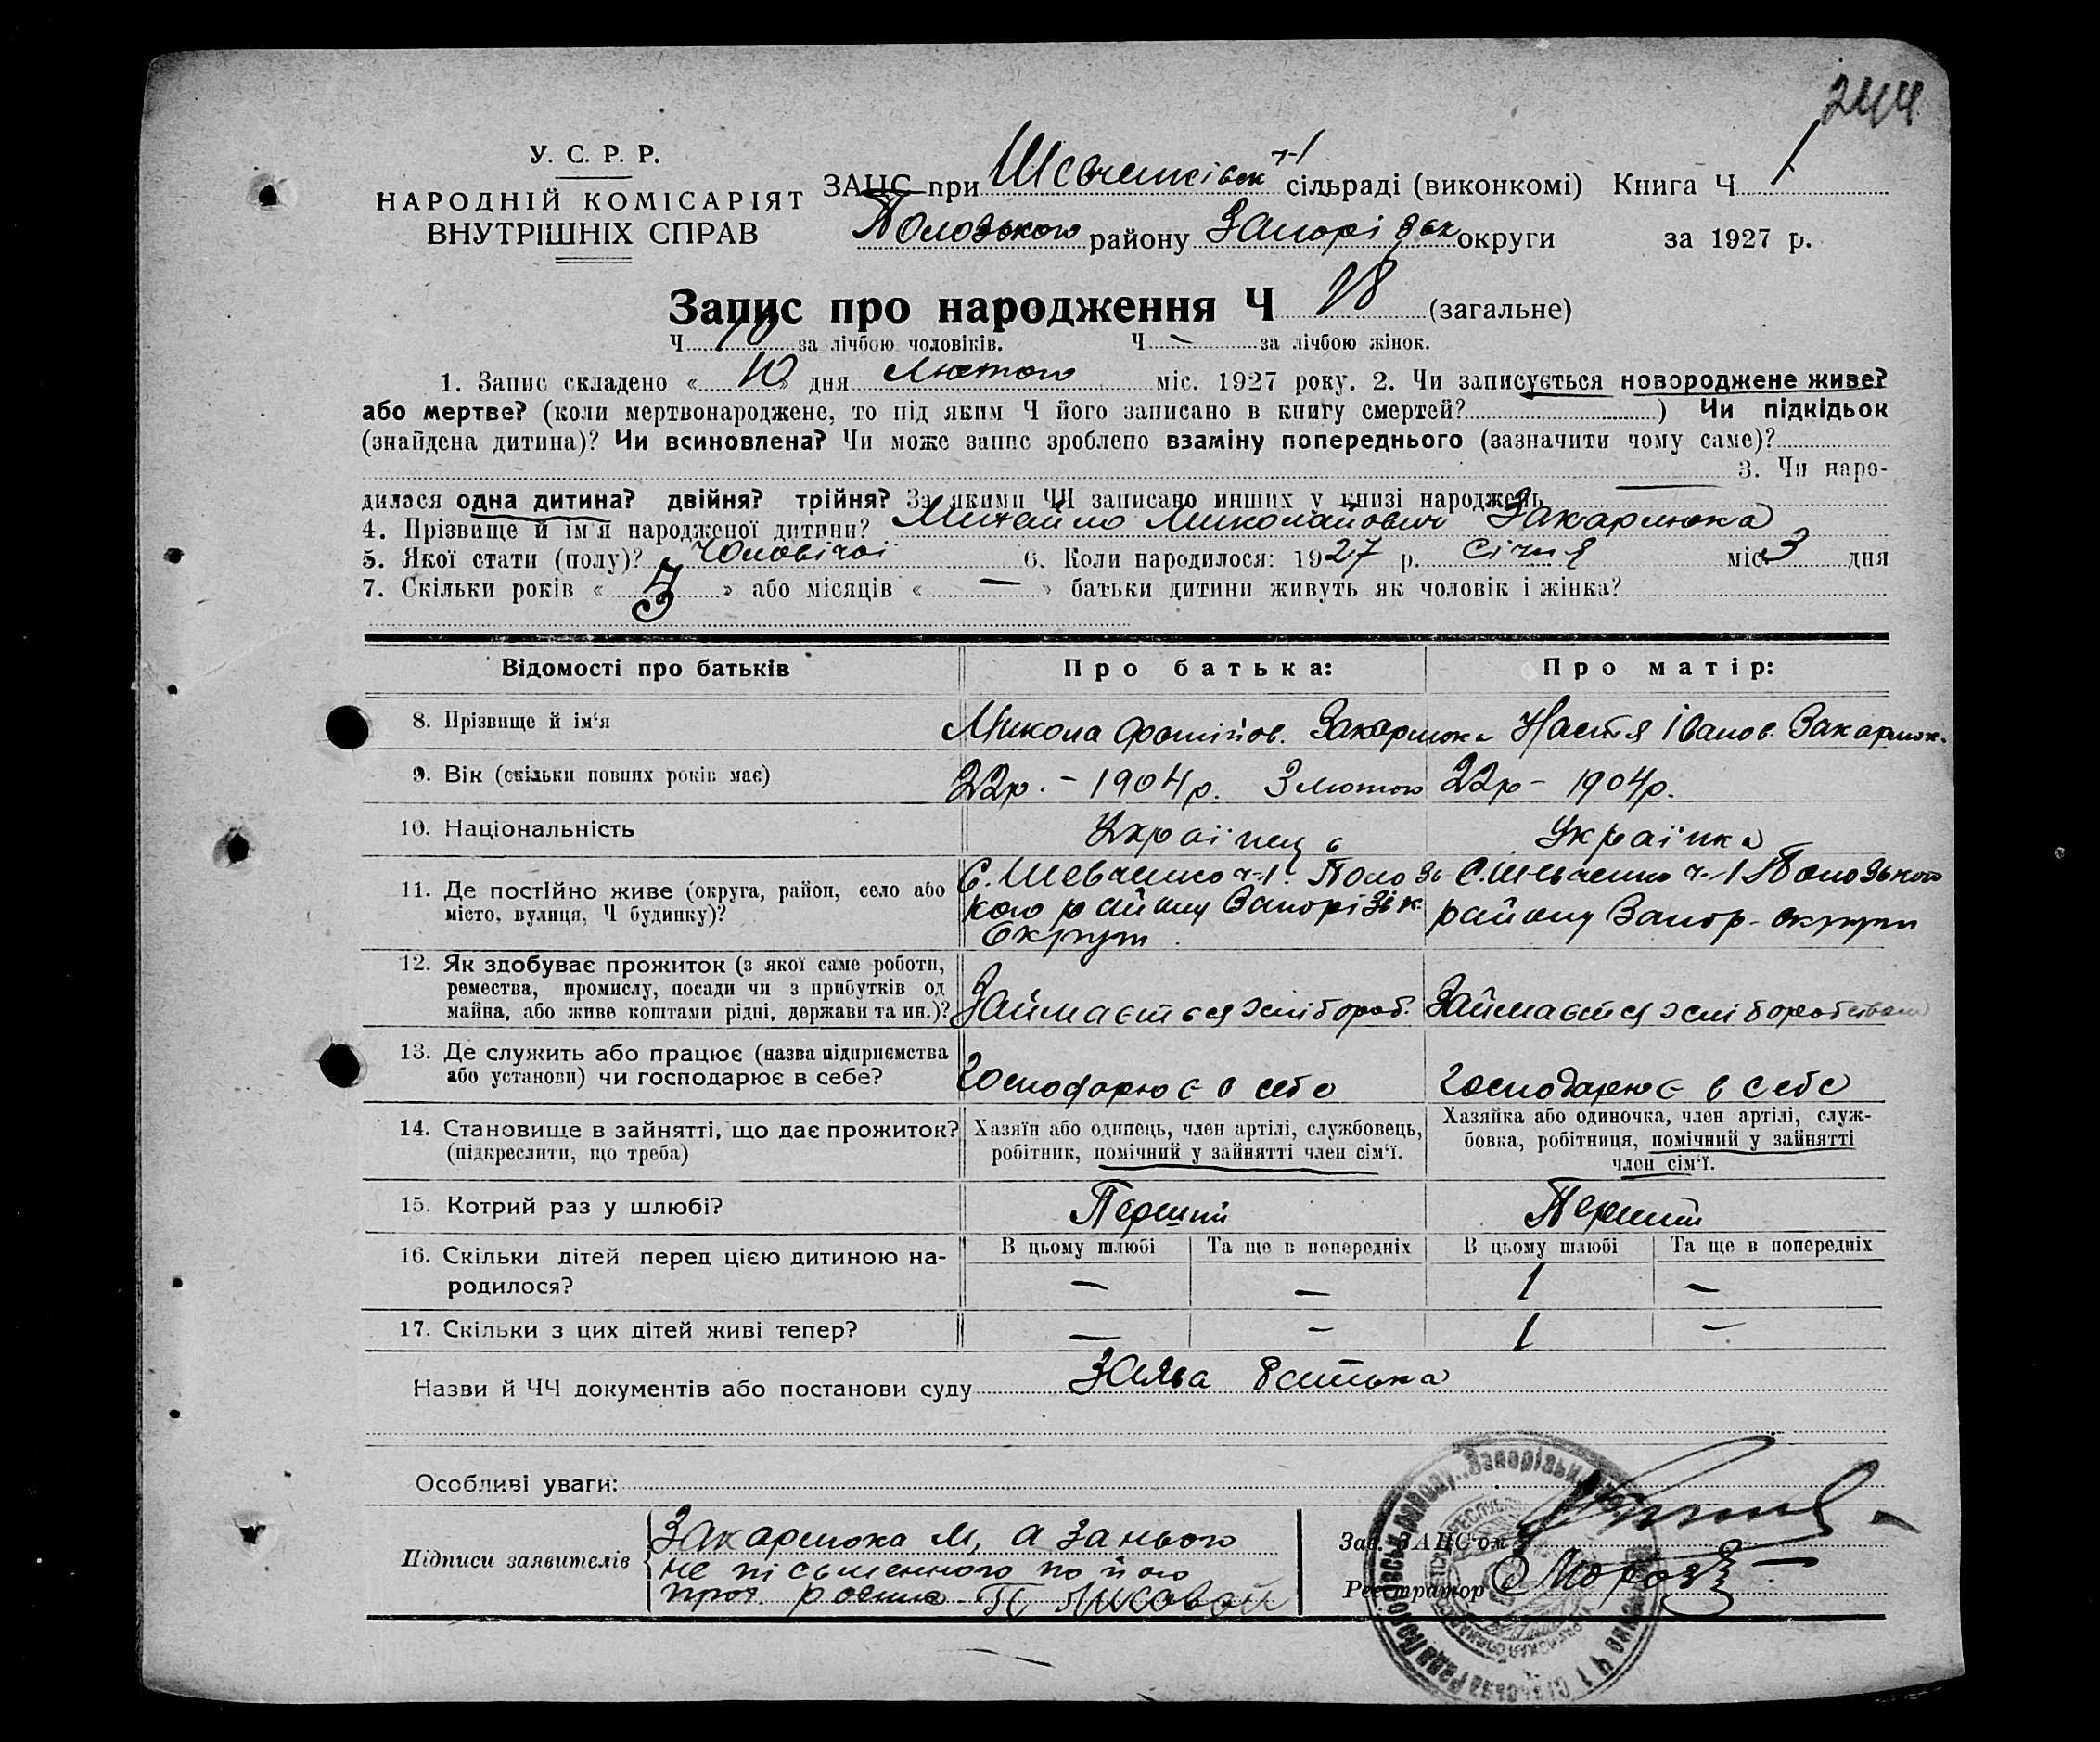 244
У. С. Р. Р.
НАРОДНІЙ КОМІСАРІЯТ
ВНУТРІШНІХ СПРАВ
ЗАЦС при Шевченківск ч-1 сільраді (виконкомі) Книга Ч 1
Пологського району Запорізьк округи за 1927 р.
Запис про народження Ч 18 (загальне)
Ч 10 за лічбою чоловіків. Ч — за лічбою жінок.
1. Запис складено «10» дня Лютого міс. 1927 року. 2. Чи записується новороджене живе?
або мертве? (коли мертвонароджене, то під яким Ч його записано в книгу смертей?) Чи підкідьок
(знайдена дитина)? Чи всиновлена? Чи може запис зроблено взаміну попереднього (зазначити чому саме)?
3. Чи наро-
дилася одна дитина? двійня? трійня? За якими ЧЧ записано инших у книзі народжень
4. Прізвище й ім'я народженої дитини? Михайло Миколайович Закарлюка
5. Якої стати (полу)? Чоловічої 6. Коли народилося: 1927 р. Січня міс. 3 дня
7. Скільки років « 3 » або місяців « — » батьки дитини живуть як чоловік і жінка?
Відомості про батьків Про батька: Про матір:
8. Прізвище й ім'я Микола Фотійов. Закарлюка Настя Іванов. Закарлюк.
9. Вік (скільки повних років має) 22р. - 1904р. 3 лютого 22р - 1904р.
10. Національність Українець Українка
11. Де постійно живе (округа, район, село або
місто, вулиця, Ч будинку)?
С. Шевченко ч-1. Полозь
кого району Запорізьк
Округи
С. Шевченко ч-1 Полозького
району Запор- округи
12. Як здобуває прожиток (з якої саме роботи,
ремества, промислу, посади чи з прибутків од
майна, або живе коштами рідні, держави та ин.)?
Займається хлібороб. Займається хліборобством
13. Де служить або працює (назва підприємства
або установи) чи господарює в себе?
Господарює в себе Господарює в себе
14. Становище в зайнятті, що дає прожиток?
(підкреслити, що треба)
Хазяїн або одинець, член артілі, службовець,
робітник, помічний у зайнятті член сім'ї.
Хазяйка або одиночка, член артілі, служ-
бовка, робітниця, помічний у зайнятті
член сім'ї.
15. Котрий раз у шлюбі? Перший Перший
16. Скільки дітей перед цією дитиною на-
родилося?
В цьому шлюбі Та ще в попередніх В цьому шлюбі Та ще в попередніх
— — 1 —
17. Скільки з цих дітей живі тепер? — — 1 —
Назви й ЧЧ документів або постанови суду Заява батька
Особливі уваги:
Підписи заявителів
Закарлюка М, а за нього
не письменного по його
прох. росписа
Зав. ЗАЦС'ом
Реєстратор Мороз